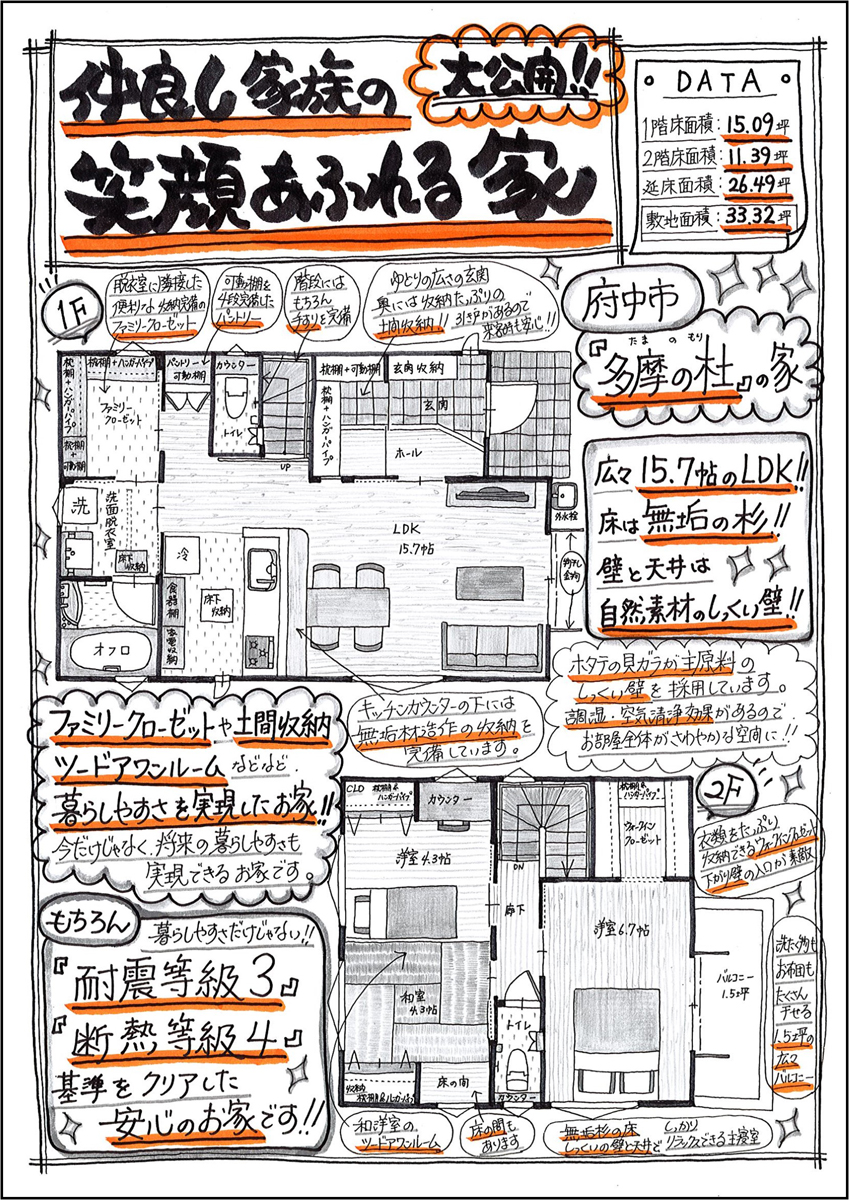 仲良し家族の
大公開!!
笑顔あふれる家
DATA
1階床面積：15.09坪
2階床面積：11.39坪
延床面積：26.49坪
敷地面積：33.32坪
1F
脱衣室に隣接した
便利な収納完備の
ファミリークローゼット
可動棚を
4段完備した
パントリー
階段には
もちろん
手すりを完備
ゆとりの広さの玄関
奥には収納たっぷりの
土間収納!! 引き戸があるので
来客時も安心!!
府中市
『多摩の杜』の家
たまのもり
枕棚+ハンガーパイプ
枕棚+ハンガーパイプ
枕棚+可動棚
ファミリー
クローゼット
パントリー
可動棚
カウンター
トイレ
UP
枕棚+可動棚
枕棚+ハンガーパイプ
玄関収納
玄関
ホール
洗
洗面脱衣室
床下
収納
冷
食器棚
家電収納
床下
収納
オフロ
LDK
15.7帖
外水栓
物干し
金物
広々15.7帖のLDK!!
床は無垢の杉!!
壁と天井は
自然素材のしっくい壁!!
ホタテの貝ガラが主原料の
しっくい壁を採用しています。
調湿・空気清浄効果があるので
お部屋全体がさわやかな空間に!!
キッチンカウンターの下には
無垢材造作の収納を
完備しています。
ファミリークローゼットや土間収納
ツードアワンルームなどなど
暮らしやすさを実現したお家!!
今だけじゃなく、将来の暮らしやすさも
実現できるお家です。
もちろん
暮らしやすさだけじゃない!!
『耐震等級3』
『断熱等級4』
基準をクリアした
安心のお家です!!
2F
衣類をたっぷり
収納できるウォークインクローゼット
下がり壁の入口が素敵
CLO
枕棚&
ハンガーパイプ
カウンター
洋室4.3帖
DN
廊下
枕棚&
ハンガーパイプ
ウォークイン
クローゼット
洋室6.7帖
和室
4.3帖
トイレ
カウンター
収納
枕棚&ハンガーパイプ
床の間
バルコニー
1.5坪
洗たく物も
お布団も
たくさん
干せる
1.5坪の
広々
バルコニー
和洋室の
ツードアワンルーム
床の間も
あります
無垢杉の床
しっくいの壁と天井で
しっかり
リラックスできる主寝室